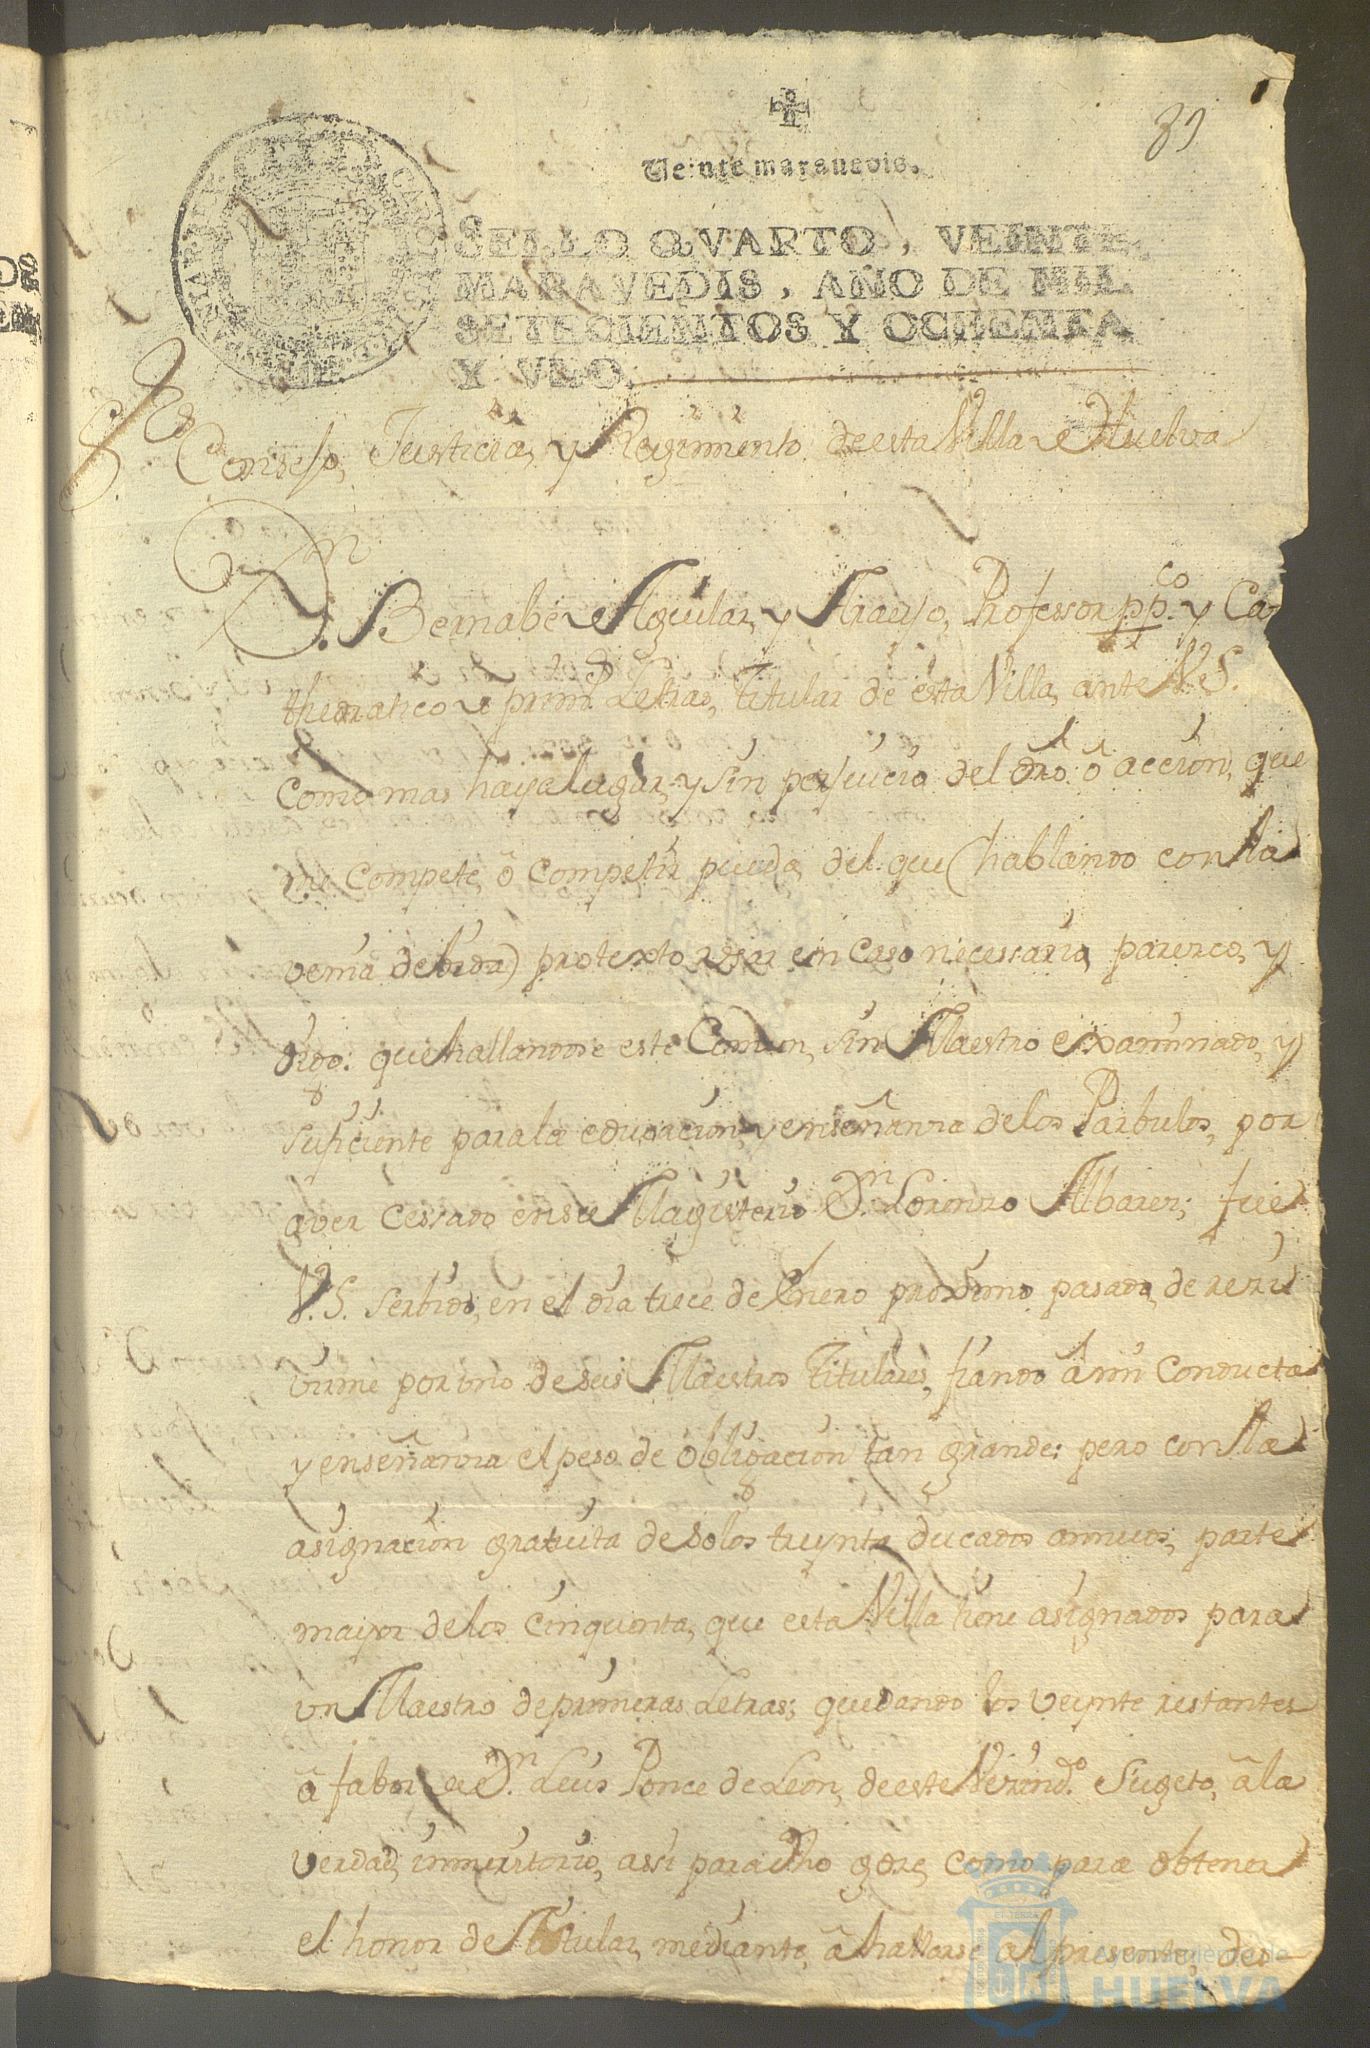 89
Veinte maravedis.
SELLO QVARTO, VEINTE
MARAVEDIS, AÑO DE MIL
SETECIENTOS Y OCHENTA
Y VNO.
Consejo, Justicia, y Regimiento de esta Villa de Huelva
Dn. Bernabe de Aguilar, y Araujo, Professor ppco. y Ca
thedratico de primrs Letras, Titular de esta Villa, ante V.S.
como mas haya lugar, y sin perjuicio del dro. ô accion, que
me compete, ô competir pueda, del que (hablando con la
venia debida) protexto usar en caso necessario, parezco, y
digo: que hallandose este Comun, sin Maestro examinado, y
suficiente para la educacion, y enseñanza de los Parbulos, por
aver cessado en su Magisterio Dn. Lorenzo Albarez; fue
V.S. serbido, en el dia trece de Enero proximo pasado, de reci
virme por uno de sus Maestros Titulares, fiando â mi conducta
y enseñanza el peso de obligacion tan grande: pero con la
asignacion gratuita de solos treynta ducados annuos; parte
mayor de los cinquenta, que esta Villa tiene asignados para
un Maestro de primeras Letras; quedando los veynte restantes
â fabor de Dn. Luis Ponce de Leon, de este Vecindo. sugeto, â la
verdad, immeritorio, assi para dho goze, como para obtener
el honor de Titular, mediante, â hallarse al presente, des-
Ayuntamiento de
HUELVA